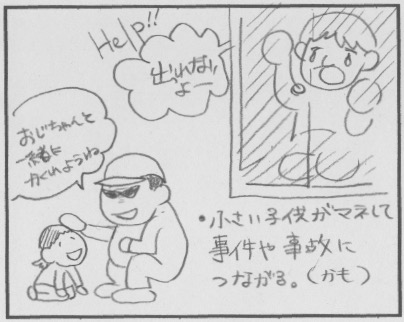 Help!!
出られない
よー
おじちゃんと
一緒に
かくれようね
・小さい子供がマネして
事件や事故に
つながる。(かも)